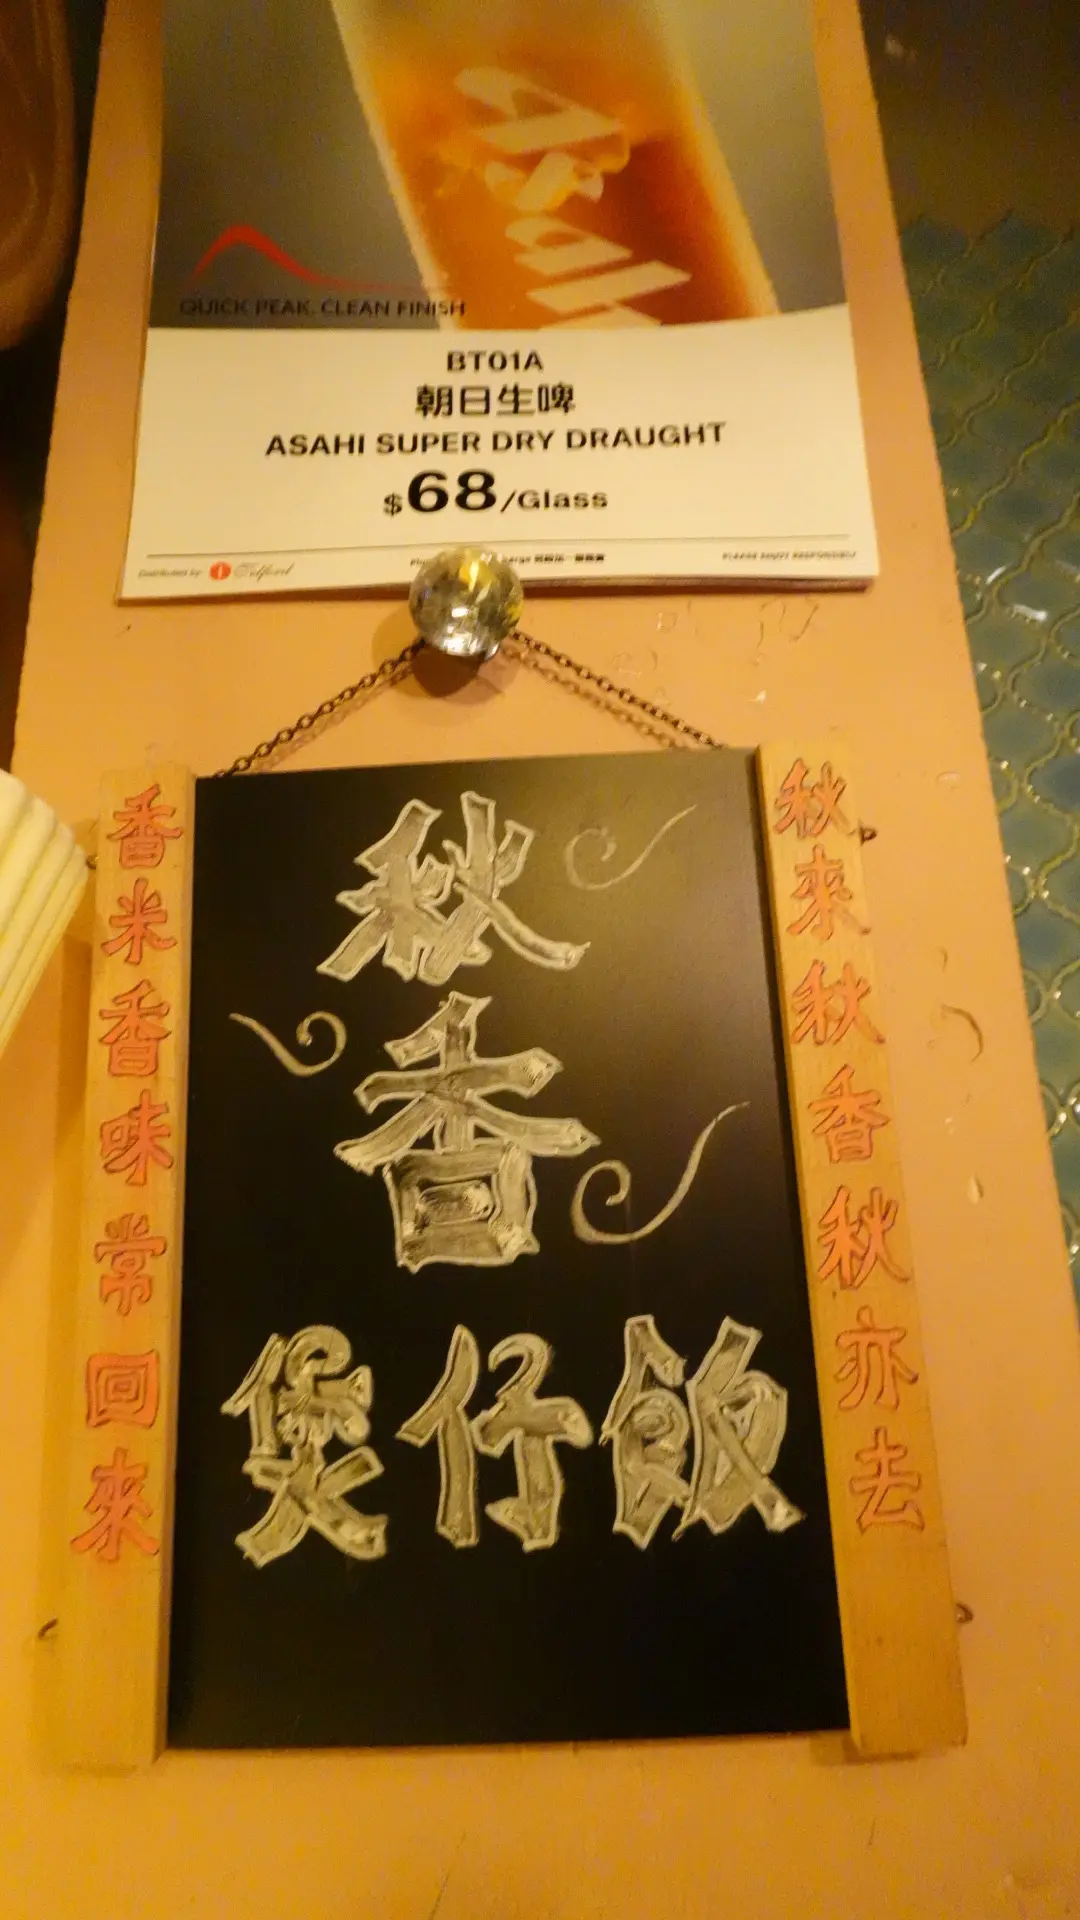 ASAHI
QUICK PEAK. CLEAN FINISH
BT01A
朝日生啤
ASAHI SUPER DRY DRAUGHT
$68/Glass
Distributed by: Telford
PLEASE ENJOY RESPONSIBLY
秋來秋香秋亦去
秋香
煲仔飯
香米香味常回來